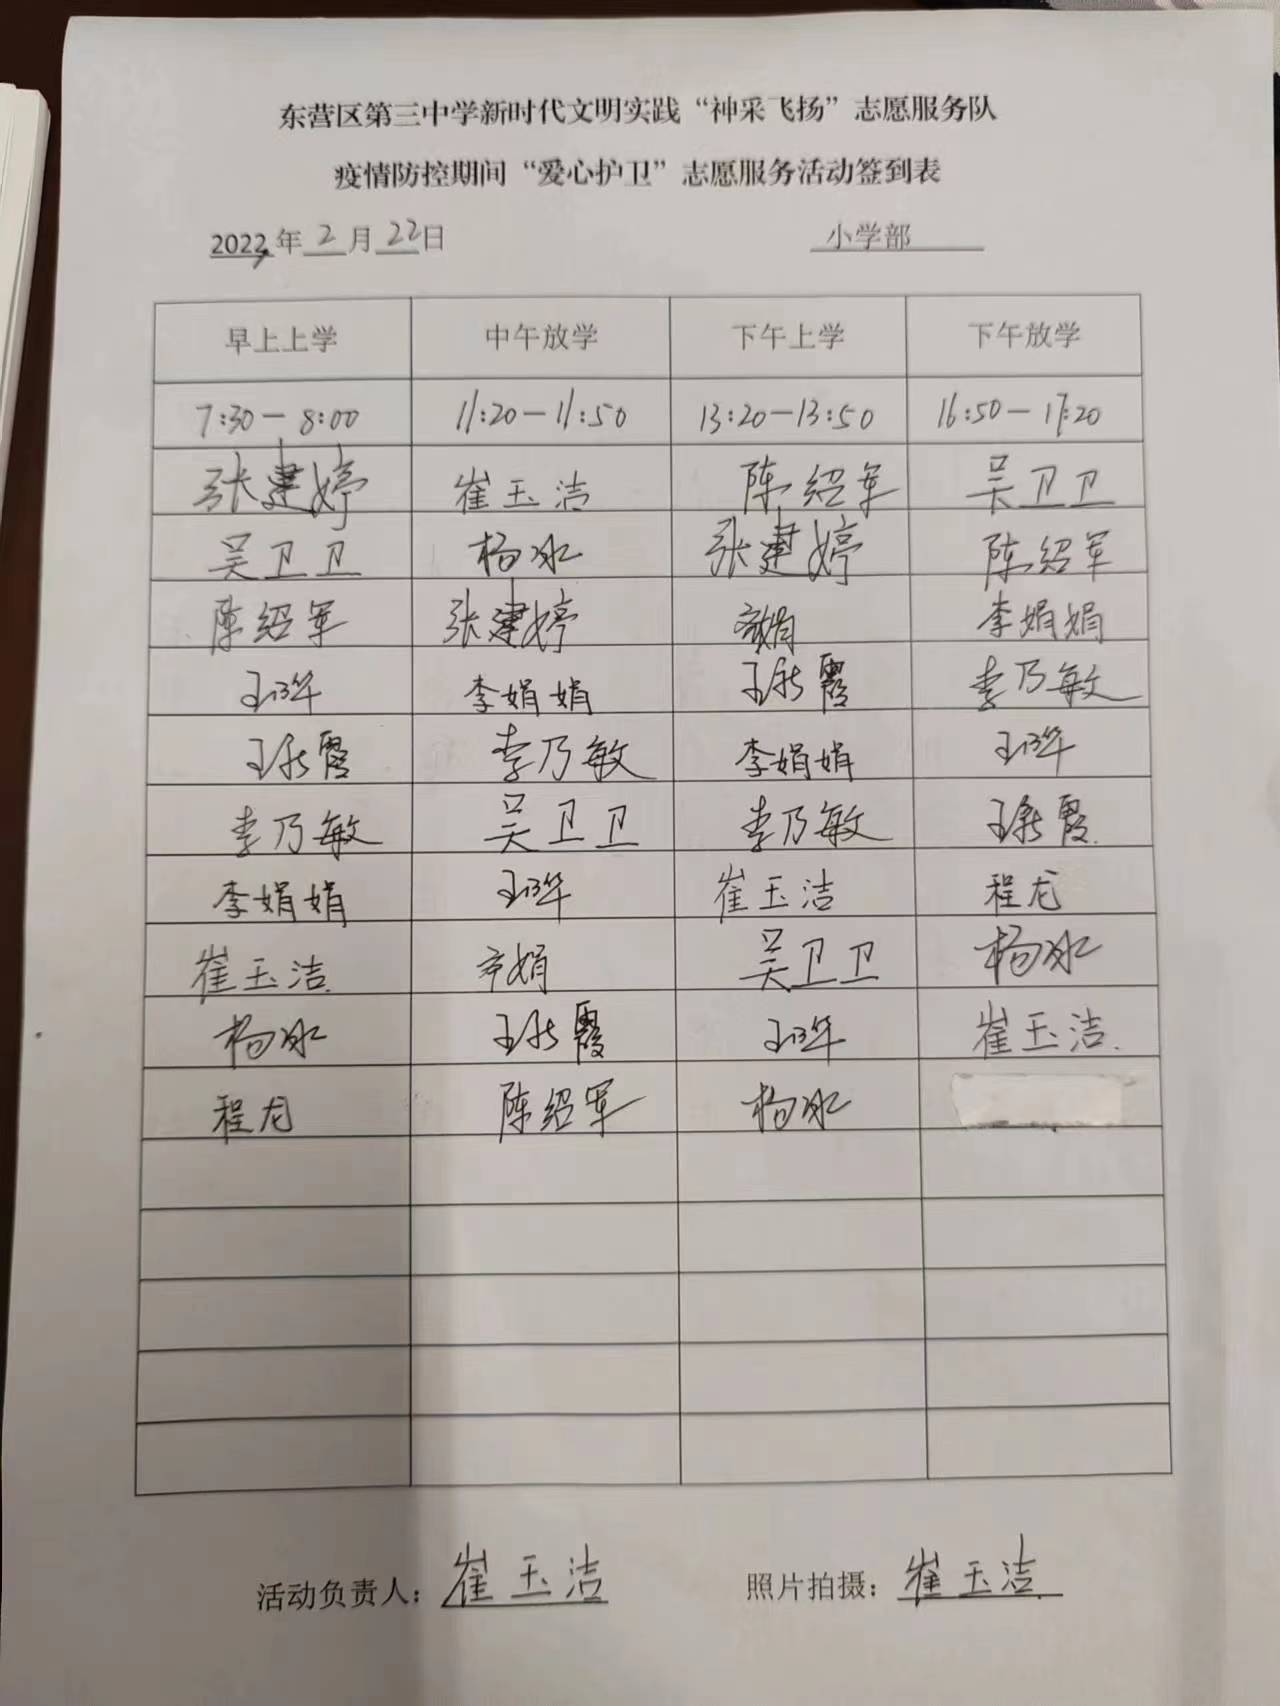 东营区第三中学新时代文明实践“神采飞扬”志愿服务队
疫情防控期间“爱心护卫”志愿服务活动签到表
2022年2月22日 小学部
早上上学 中午放学 下午上学 下午放学
7:30-8:00 11:20-11:50 13:20-13:50 16:50-17:20
张建婷 崔玉洁 陈绍军 吴卫卫
吴卫卫 杨冰 张建婷 陈绍军
陈绍军 张建婷 李娟娟
李娟娟 李乃敏
李乃敏 李娟娟
李乃敏 吴卫卫 李乃敏
李娟娟 崔玉洁 程龙
崔玉洁 吴卫卫 杨冰
杨冰 崔玉洁
程龙 陈绍军 杨冰
活动负责人：崔玉洁 照片拍摄：崔玉洁